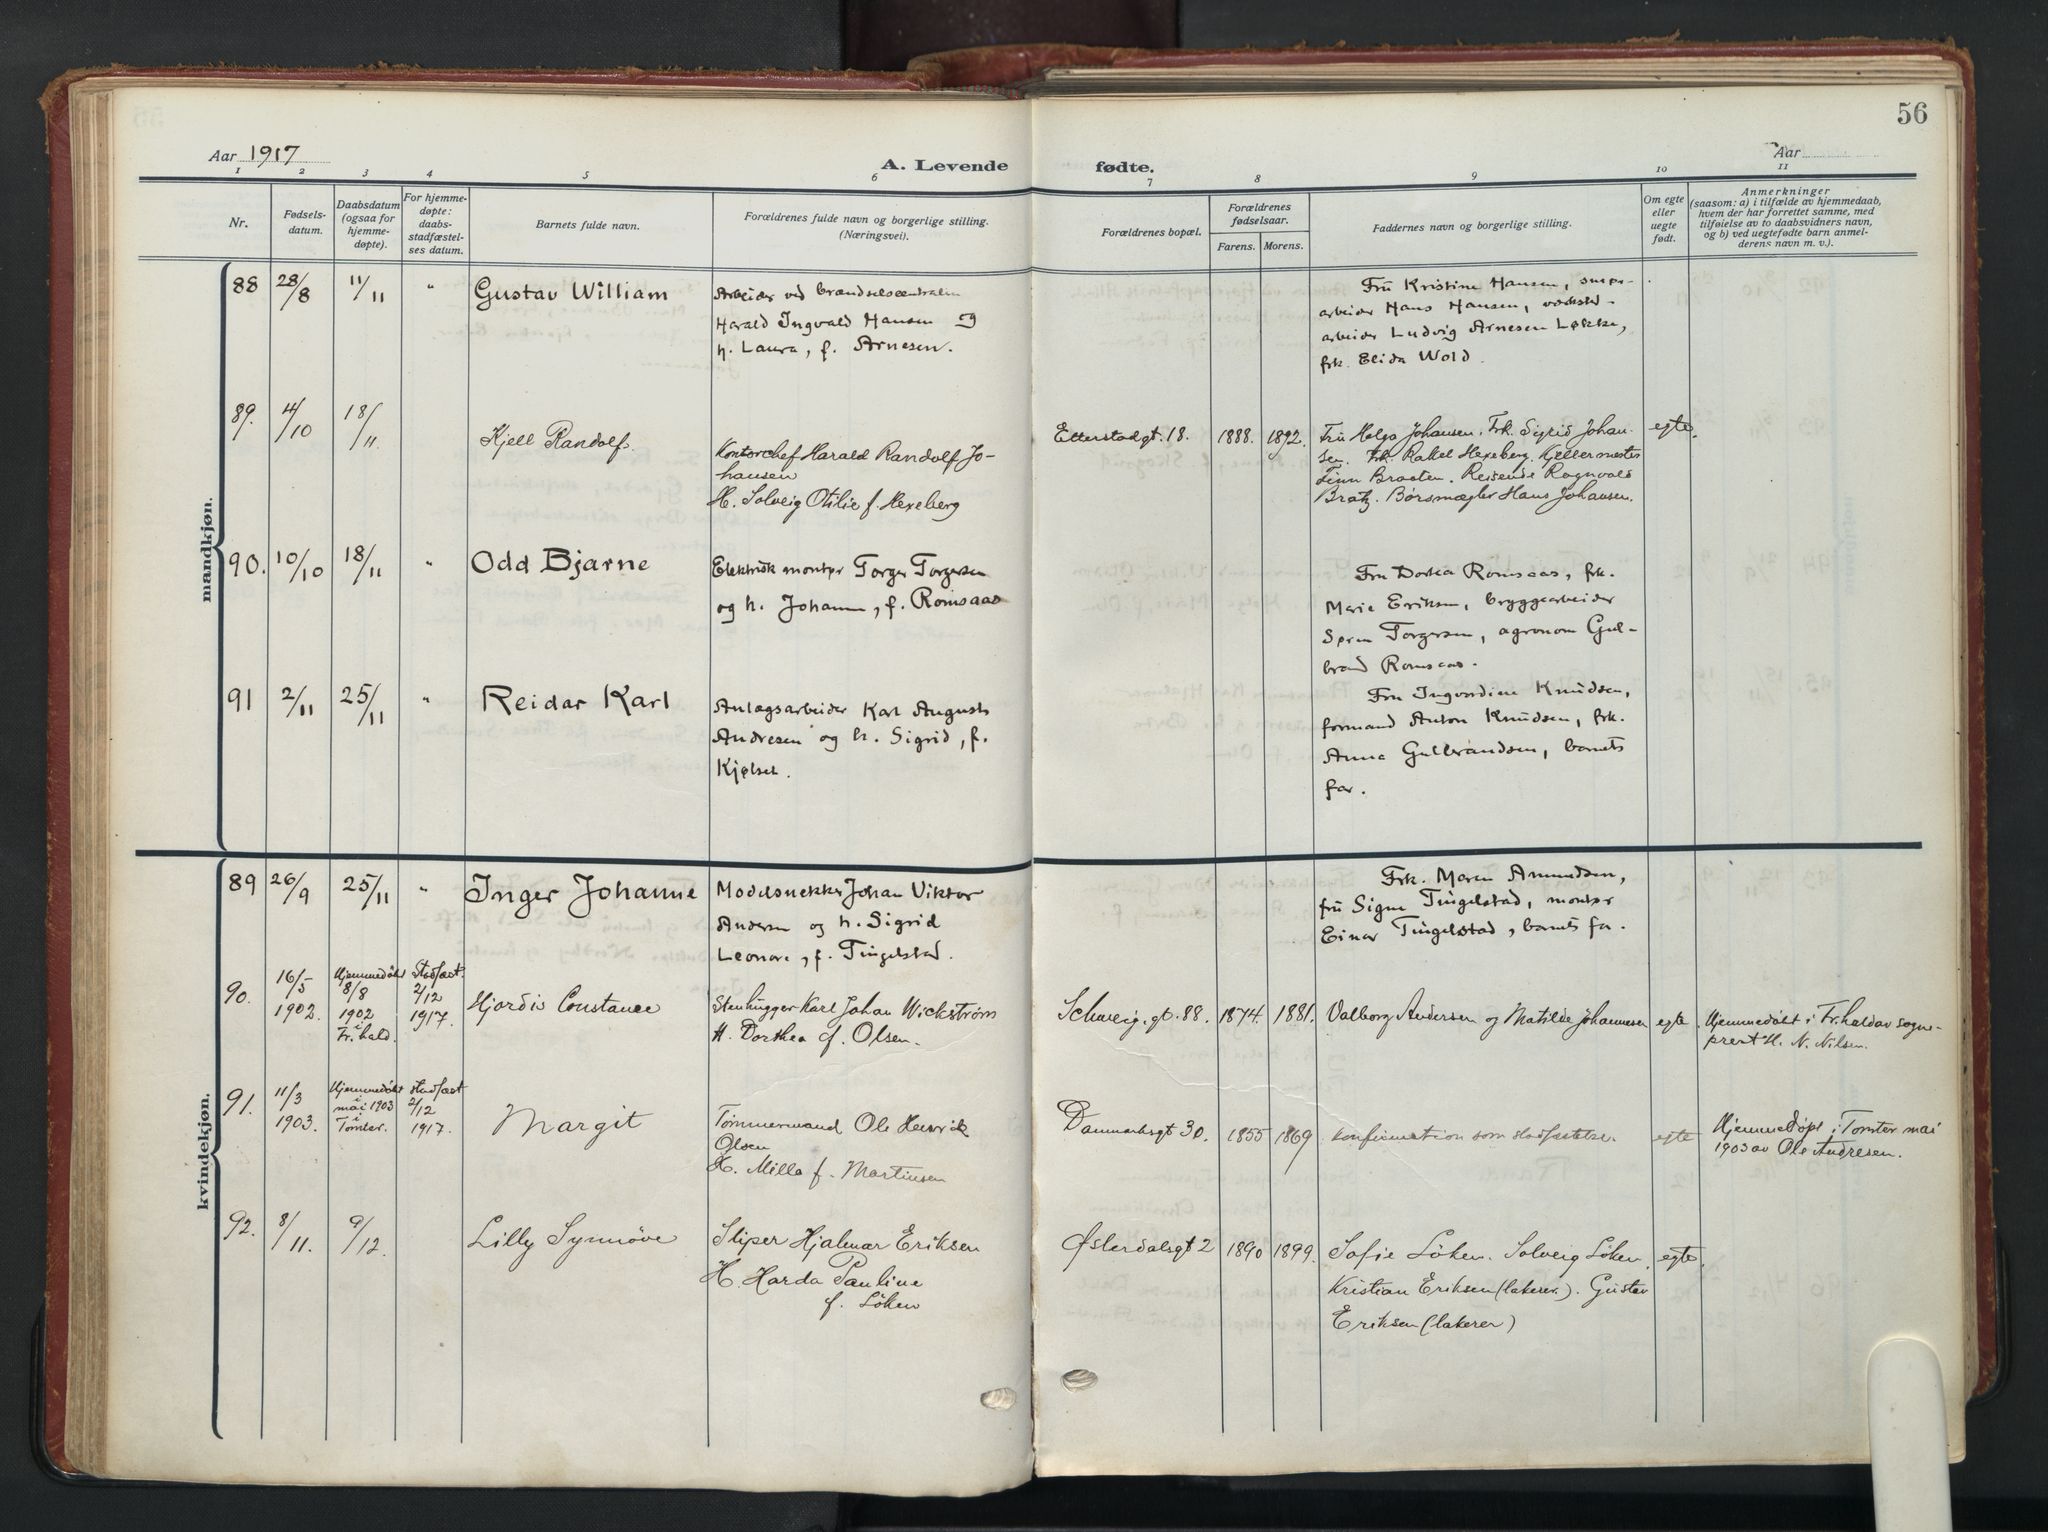 56
Aar 1917
A. Levende fødte.
Aar
1 2 3 4 5 6 7 8 9 10 11
Nr.
Fødsels-
datum.
Daabsdatum
(ogsaa for
hjemme-
døpte).
For hjemme-
døpte:
daabs-
stadfæstel-
ses datum.
Barnets fulde navn.
Forældrenes fulde navn og borgerlige stilling.
(Næringsvei).
Forældrenes bopæl.
Forældrenes
fødselsaar.
Farens. Morens.
Faddernes navn og borgerlige stilling.
Om egte
eller
uegte
født.
Anmerkninger
(saasom: a) i tilfælde av hjemmedaab,
hvem der har forrettet samme, med
tilføielse av to daabsvidners navn,
og b) ved uegtefødte barn anmel-
derens navn m. v.).
mandkjøn.
88 28/8 11/11 " Gustav William
Arbeider ved brændselscentralen
Harald Ingvald Hansen og
h. Laura, f. Arnesen.
Fru Kristine Hansen, smør-
arbeider Hans Hansen, verksted-
arbeider Ludvig Arnesen Løkke,
frk. Elida Wold.
89. 4/10 18/11. Kjell Randolf.
Kontorchef Harald Randolf Jo-
hansen
H. Solveig Otilie f. Hexeberg
Etterstadgt. 18. 1888. 1892.
Fru Helga Johansen. Frk. Sigrid Johan-
sen. Frk. Rakel Hexeberg. Kjellermester
Finn Braaten. Reisende Ragnvald
Bratz. Børsmægler Hans Johansen.
egte.
90. 10/10 18/11 " Odd Bjarne
Elektrisk montør Torger Torgersen
og h. Johanne, f. Romsaas
Fru Dortea Romsaas, frk.
Marie Eriksen, bryggearbeider
Søren Torgersen, agronom Gul-
brand Romsaas.
91 2/11 25/11 " Reidar Karl
Anlægsarbeider Karl August
Andresen og h. Sigrid, f.
Kjølset.
Fru Ingvardine Knudsen,
formand Anton Knudsen, frk.
Anna Gulbrandsen, barnets
far.
kvindekjøn.
89 26/9 25/11 " Inger Johanne
Modelsnekker Johan Viktor
Andersen og h. Sigrid
Leonore, f. Tingelstad.
Frk. Maren Amundsen,
fru Signe Tingelstad, montør
Einar Tingelstad, barnets far.
90. 16/5 1902.
Hjemmedøbt
8/8
1902
i
Fr.hald.
Stadfæst.
2/12
1917.
Hjørdis Constance
Stenhugger Karl Johan Wickstrøm
H. Dorthea f. Olsen.
Schweig.gt. 88. 1874. 1881.
Valborg Andersen og Matilde Johannesen
egte.
Hjemmedøbt i Fr.hald av sogne-
prest H. N. Nilsen.
91. 11/3 1903.
Hjemmedøbt
i
mai 1903
i
Tomter.
stadfæst
2/12
1917.
Margit
Tømmermand Ole Henrik
Olsen
H. Milla f. Martinsen
Danmarksgt 30. 1855 1869
Konfirmation som stadfæstelse.
egte
Hjemmedøpt i Tomter mai
1903 av Ole Andresen.
92. 8/11. 9/12. Lilly Synnøve
Sliper Hjalmar Eriksen
H. Harda Pauline
f. Löken
Østerdalsgt 2 1890 1899.
Sofie Löken. Solveig Löken.
Kristian Eriksen (lakerer). Gustav
Eriksen (lakerer)
egte.